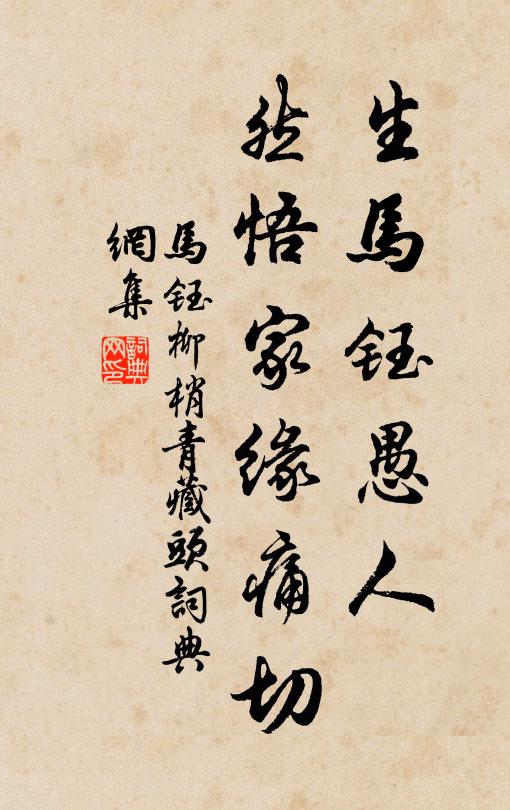 生馬鈺愚人
然悟家緣痛切
馬鈺柳梢青藏頭詞典
網集
詞典網印